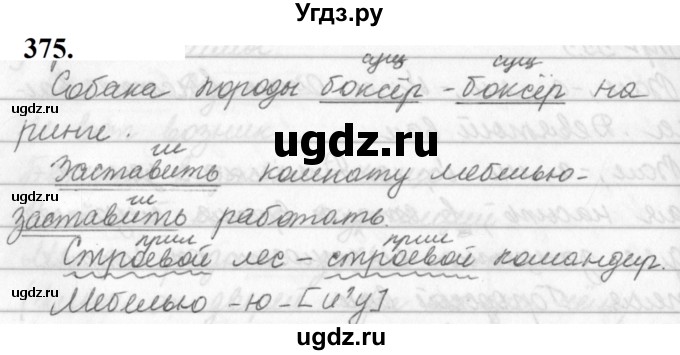 Угдз.ру
375.
сущ сущ
Собака породы боксёр - боксёр на
ринге.
гл
Заставить комнату мебелью-
гл
заставить работать.
прил прил
Строевой лес - строевой командир.
Мебелью -ю-[й'у]
uzdz.ru
uzdz.ru
uzdz.ru
uzdz.ru
uzdz.ru
uzdz.ru
uzdz.ru
uzdz.ru
Угдз.ру